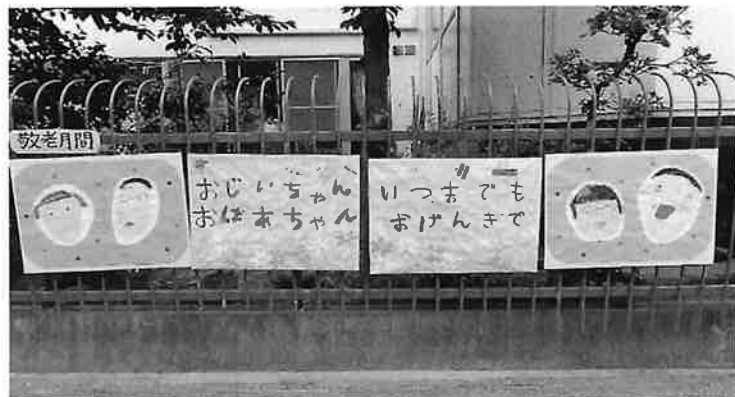 敬老月間
おじいちゃん
おばあちゃん
いつまでも
おげんきで